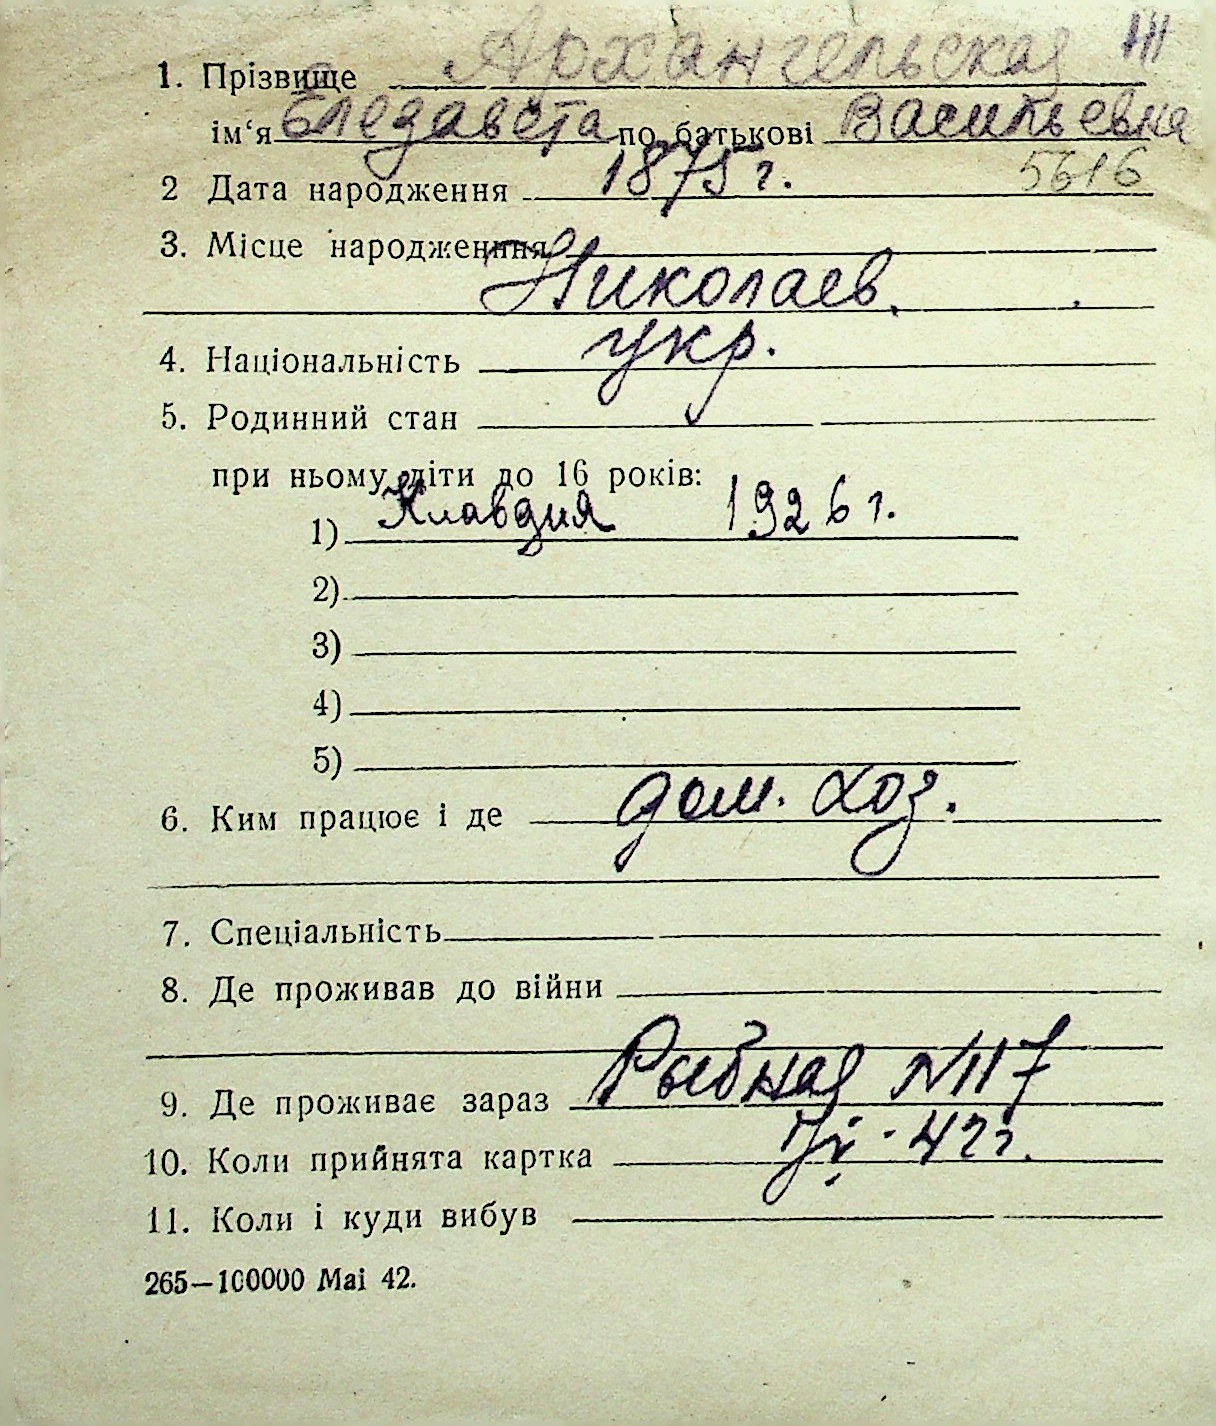 1. Прізвище Архангельская III
ім‘я Елезавета по батькові Васильевна
2 Дата народження 1875 г. 5616
3. Місце народження
Николаев.
4. Національність укр.
5. Родинний стан
при ньому діти до 16 років:
1) Клавдия 1926 г.
2)
3)
4)
5)
6. Ким працює і де дом. хоз.
7. Спеціальність
8. Де проживав до війни
9. Де проживає зараз Рыбная №117
10. Коли прийнята картка 42 г.
11. Коли і куди вибув
265—100000 Mai 42.